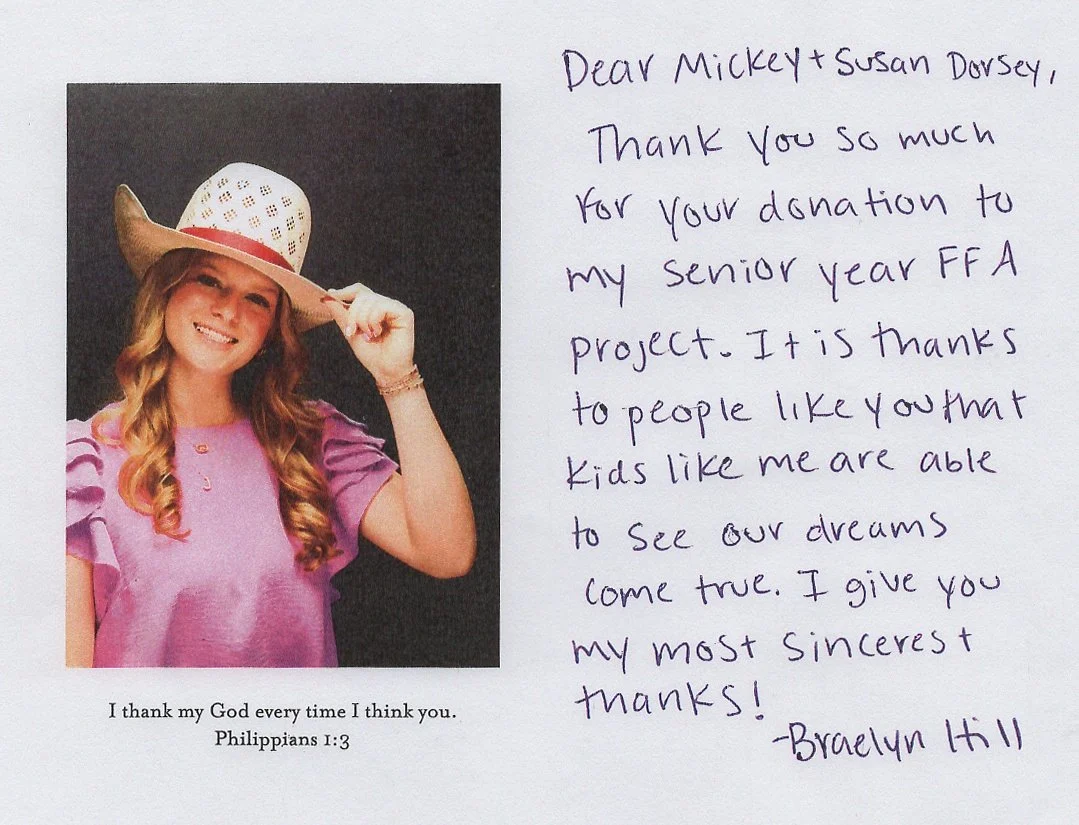 Dear Mickey + Susan Dorsey,
Thank you so much
for your donation to
my senior year FFA
project. It is thanks
to people like you that
kids like me are able
to see our dreams
come true. I give you
my most sincerest
thanks!
-Braelyn Hill
I thank my God every time I think you.
Philippians 1:3